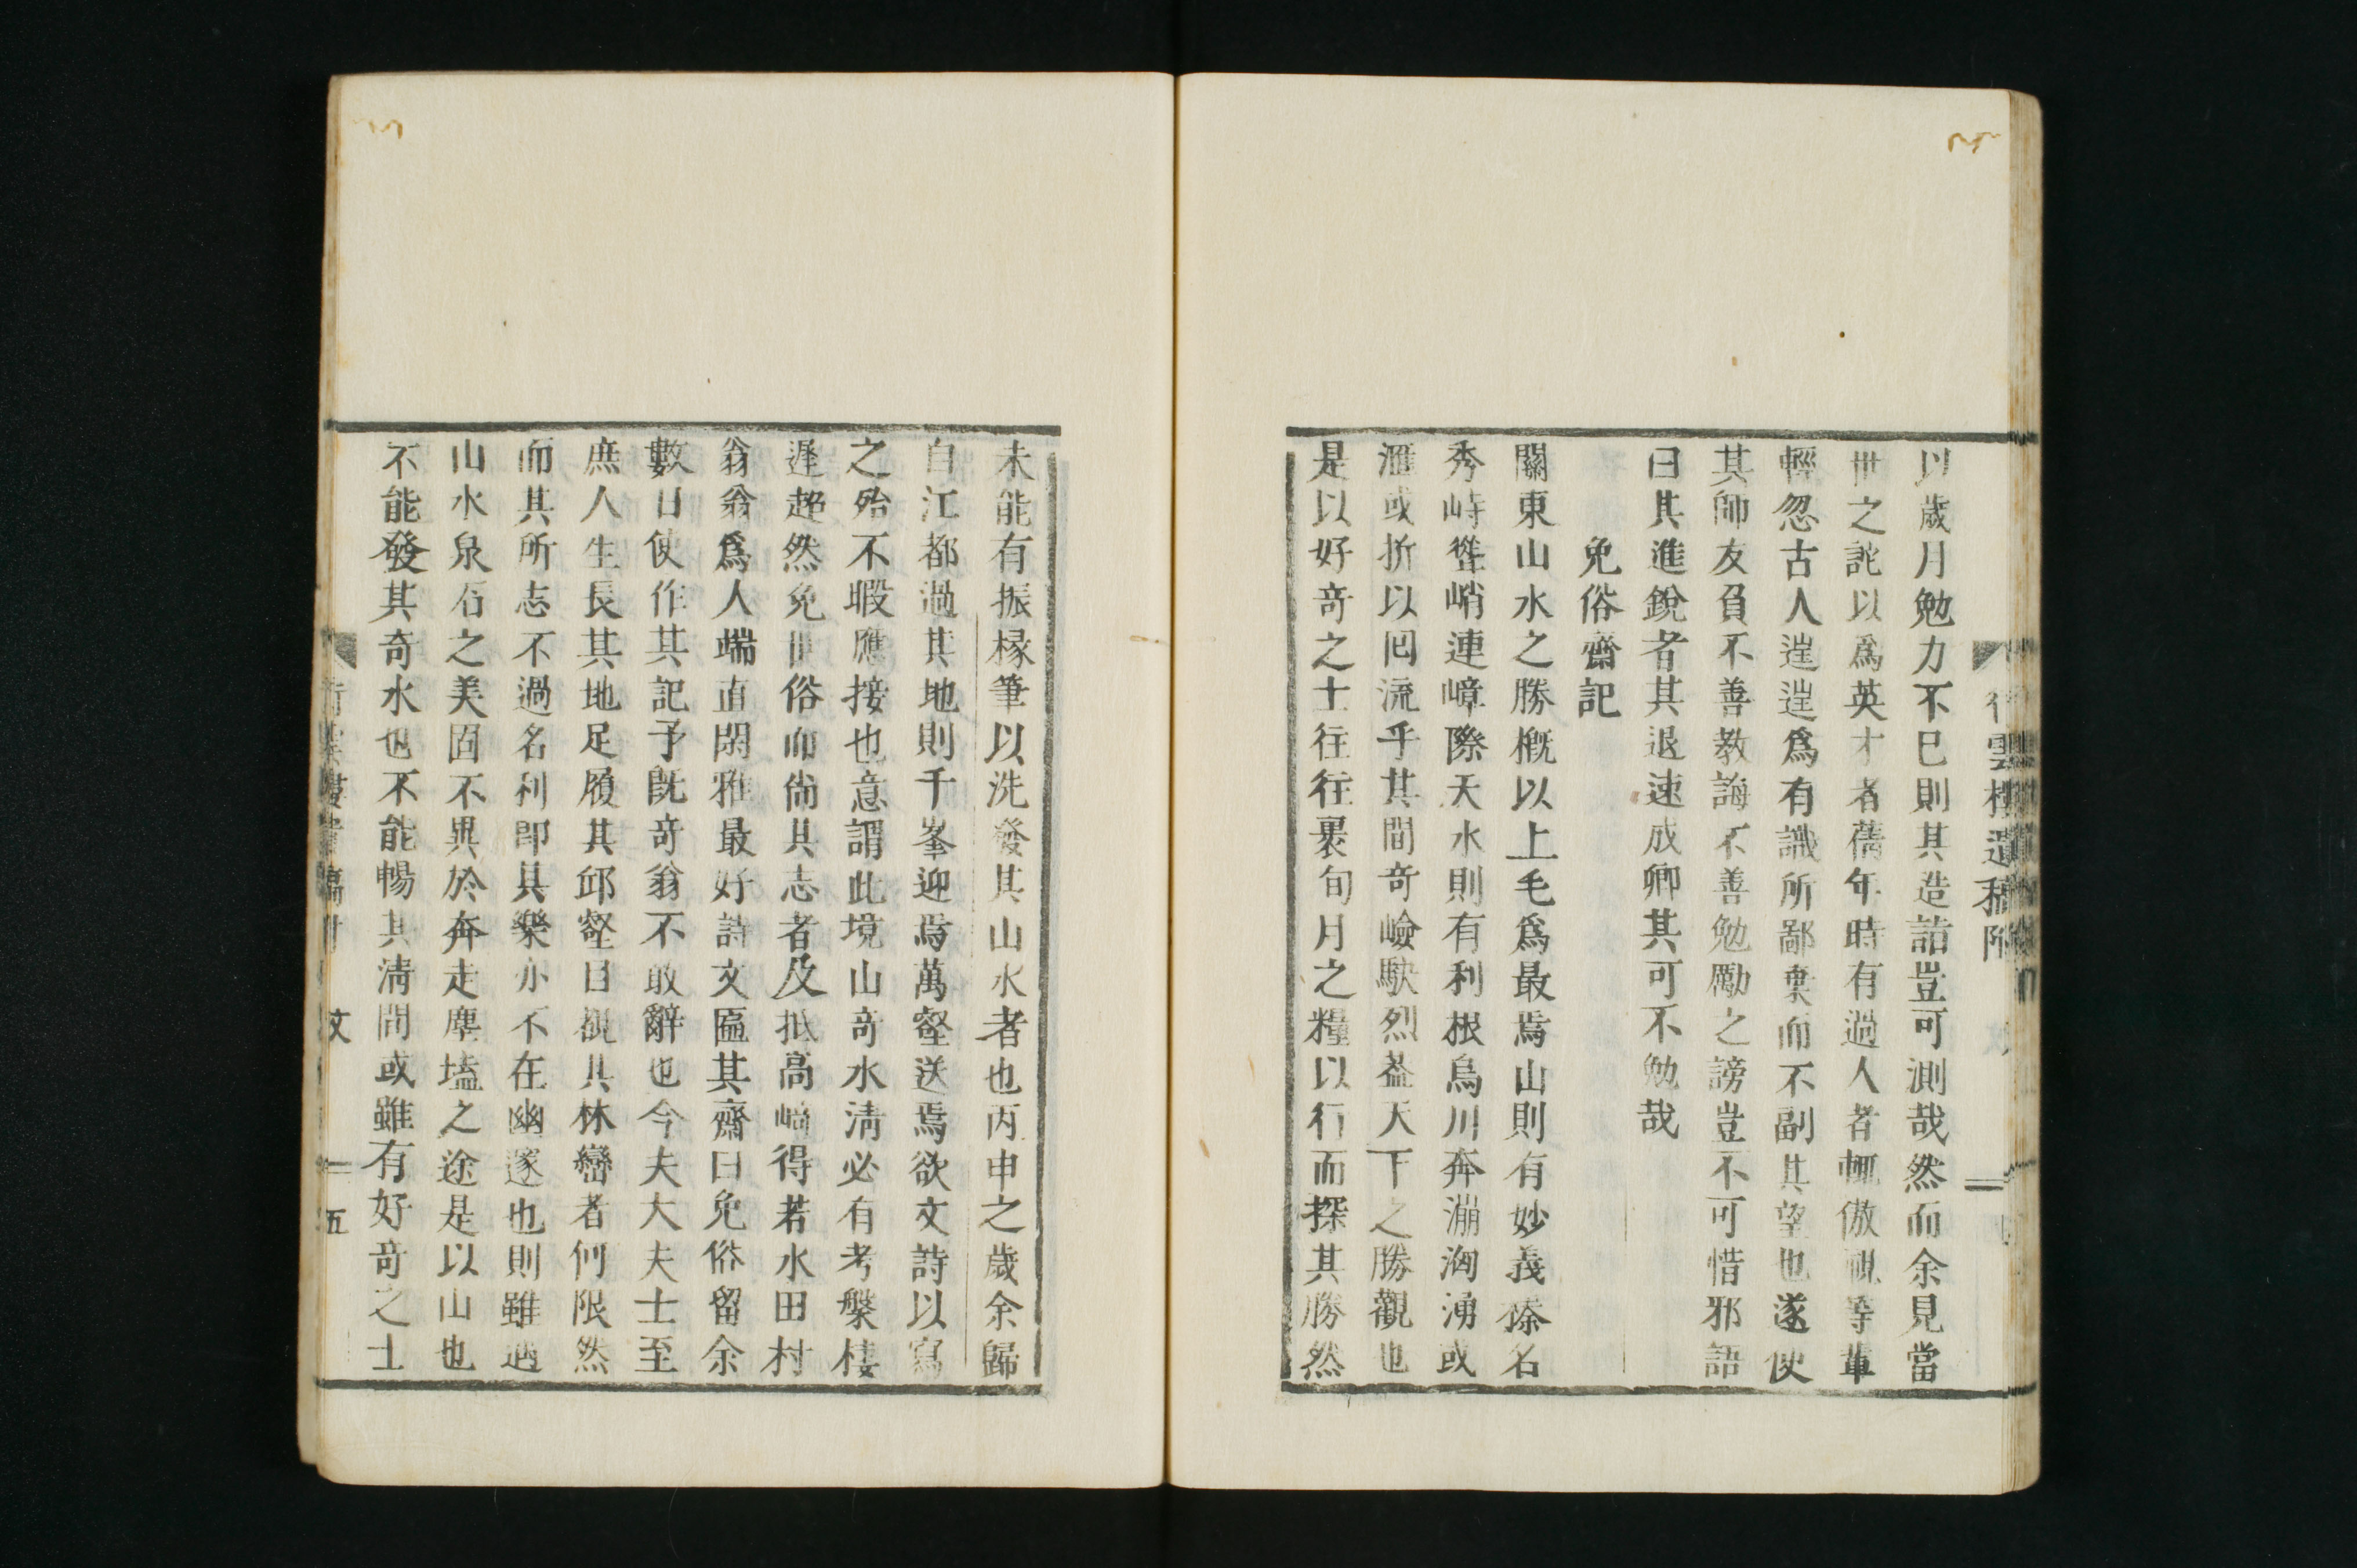 以歲月勉力不已則其造詣豈可測哉然而余見當
世之詫以爲英才者蒨年時有過人者輒傲視等輩
輕忽古人逞逞爲有識所鄙棄而不副其望也遂使
其師友負不善教誨不善勉勵之謗豈不可惜邪語
曰其進銳者其退速成卿其可不勉哉
免俗齋記
關東山水之勝槪以上毛爲最焉山則有妙義榛名
秀峙聳峭連嶂際天水則有利根烏川奔漰洶湧或
滙或折以囘流乎其間奇嶮駃烈葢天下之勝觀也
是以好奇之士往往裹旬月之糧以行而探其勝然
未能有振椽筆以洗發其山水者也丙申之歲余歸
自江都過其地則千峯迎焉萬壑送焉欲文詩以寫
之殆不暇應接也意謂此境山奇水淸必有考槃棲
遲超然免世俗而尙其志者及抵高崎得若水田村
翁翁爲人端直閑雅最好詩文匾其齋曰免俗留余
數日使作其記予旣奇翁不敢辭也今夫大夫士至
庶人生長其地足履其邱壑目覩其林巒者何限然
而其所志不過名利卽其樂亦不在幽邃也則雖遇
山水泉石之美固不異於奔走塵壒之途是以山也
不能發其奇水也不能暢其淸間或雖有好奇之士
文 五